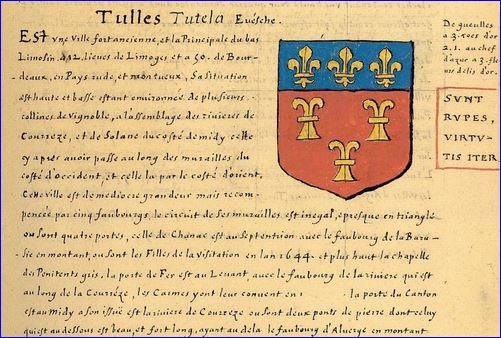 TULLES TUTELA Evésche.
EST vne Ville fort ancienne, et la Principale du bas
Limosin a 12. lieues de Limoges et a 50. de Bour-
deaux, en Pays rude, et montueux, Sa situation
est haute et basse estant enuironnée de plusieurs
collines de Vignoble, a l'assemblage des riuieres de
Courreze, et de Solane du costé de midy celle
cy apres auoir passé au long des murailles du
costé d'occident, et celle la par le costé d'orient.
Cette ville est de mediocre grandeur mais recom-
pencée par cinq faubourgs, le circuit de ses murailles est inegal, e presque en triangle
ou sont quatre portes, celle de Chanac est au septentrion auec le faubourg de la Baru-
sie en montant, ou sont les Filles de la Visitation en l'an 1644 et plus haut la chapelle
des Penitents gris, la porte de Fer est au Leuant, auec le faubourg de la riuiere qui est
au long de la Courréze, les Carmes y ont leur conuent en la porte du Canton
est au midy a son issuë est la riuiere de Courreze ou sont deux ponts de pierre dont celuy
qui est au dessous est beau, et fort long, ayant au dela le faubourg d'Aluerge en montant
De gueulles
a 3. rocs d'or
2. 1. au chef
d'azur a 3. fle
urs de lis d'or.
SUNT
RUPES,
VIRTU-
TIS ITER